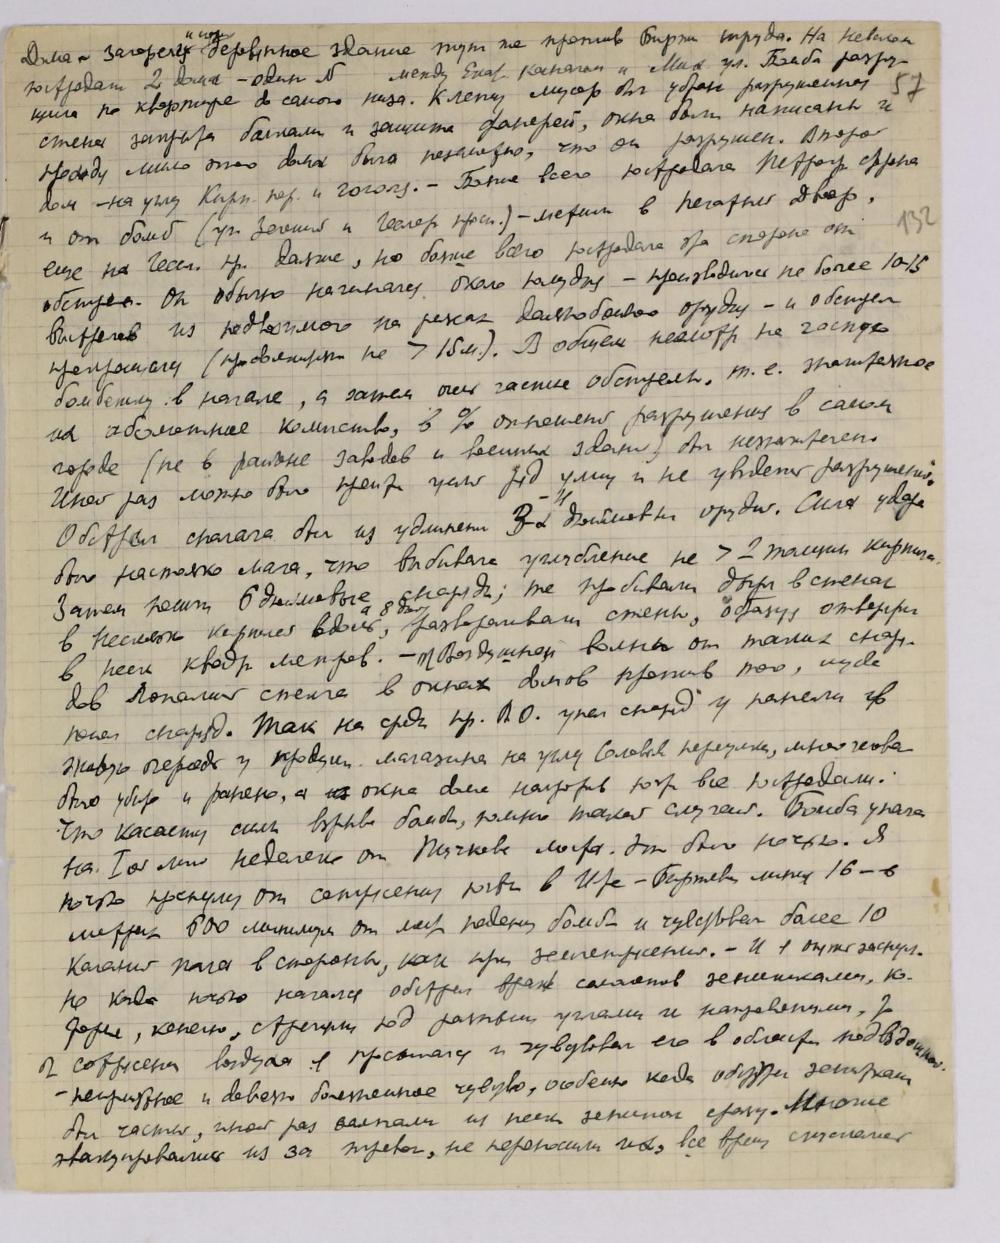 дома - загорелся деревянное здание тут же против Биржи труда. На Невском
пострадали 2 дома - один № между Екат. каналом и Мих. ул. Бомба разру-
57
шила по квартире до самого низа. К лету мусор был убран разрушенная
стена закрыта балками и зашита фанерой, окна были написаны и
проходя мимо этого дома было незаметно, что он разрушен. Второй
дом - на углу Кирп. пер. и Гоголя. - Более всего пострадала Петрогр. сторона
и от бомб (уг. Зелениной и Геслер. просп.) - метили в Печатный Двор,
132
еще на Гесл. пр. далее, но более всего пострадала эта сторона от
обстрела. Он обычно начинался около полудня - производился не более 10-15
выстрелов из подвозимого на рельсах дальнобойного орудия - и обстрел
прекращался (продолжался не > 15 м.). В общем несмотря на частую
бомбежку в начале, а затем очень частые обстрелы, т.е. значительное
их абсолютное количество, в % отношении разрушения в самом
городе (не в районе заводов и военных зданий) был незначителен
Иной раз можно было пройти целый ряд улиц и не увидеть разрушений.
Обстрел сначала был из удлиненных 3-х дюймовых орудий. Сила удара
была настолько мала, что выбивала углубление не > 2 толщин кирпича.
Затем пошли 6 дюймовые снаряды; те пробивали дыры в стенах
в несколько кирпичей, а 8 дюйм. разворачивали стены, образуя отверстия
в неск. квадр. метров. - От воздушной волны от таких снаря-
дов лопались стекла в окнах домов против того, куда
попал снаряд. Так на средн. пр. В.О. упал снаряд у панели в
живую очередь у продукт. магазина на углу Соловьев. переулка, много человек
было убито и ранено, а окна дома напротив почти все пострадали.
Что касается силы взрыва бомбы, помню такой случай. Бомба упала
на 1ой линии недалеко от Тучкова моста. Это было ночью. Я
ночью проснулся от сотрясения почвы в И-те - Биржевая линия 16 - в
метрах 600 минимум от места падения бомбы и чувствовал более 10
качаний пола в стороны, как при землетрясении. - И я опять заснул.
Но когда ночью начался обстрел враж. самолетов зенитками, ко-
торые, конечно, стреляли под разными углами и направлениями, то
от сотрясения воздуха я просыпался и чувствовал его в области подвздошной.
- неприятное и довольно болезненное чувство, особенно когда обстрел зенитками
был частый, иной раз палили из неск. зениток сразу. Многие
эвакуировались из за тревог, не переносили их, все время спускались